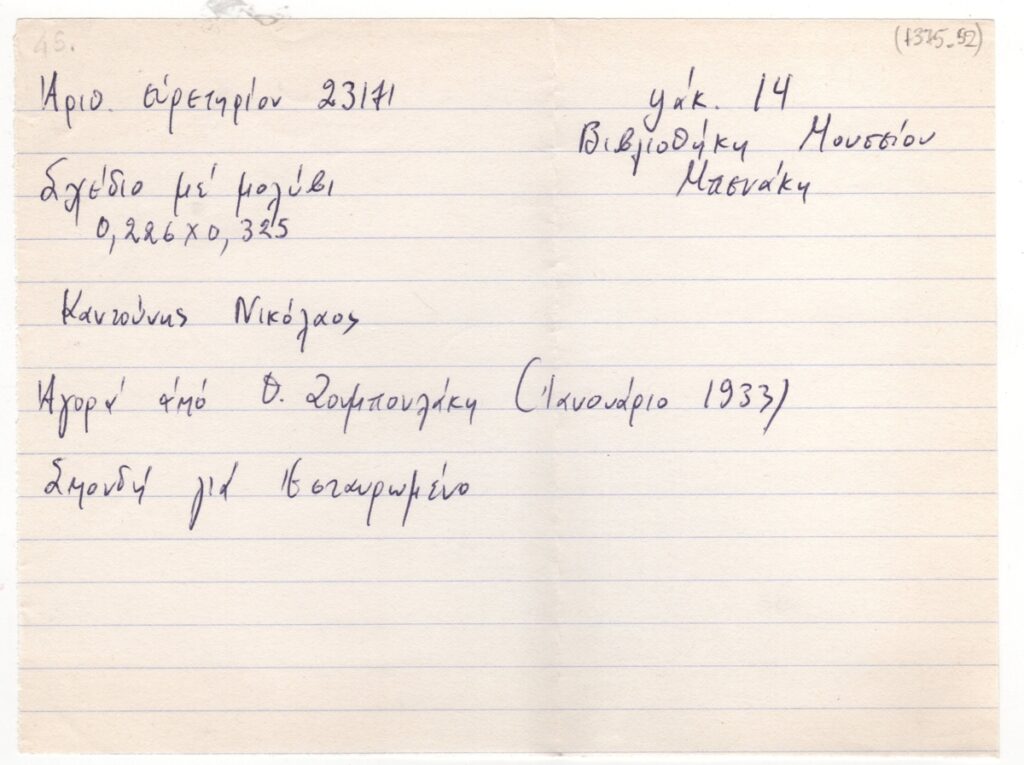 45.
(1375-92)
Ἀριθ. εὑρετηρίου 23171
φάκ. 14
Βιβλιοθήκη Μουσείου
Μπενάκη
Σχέδιο μέ μολύβι
0,226 x 0,325
Καντούνης Νικόλαος
Ἀγορά ἀπό Θ. Ζουμπουλάκη (Ἰανουάριο 1933)
Σπουδή γιά Ἐσταυρωμένο